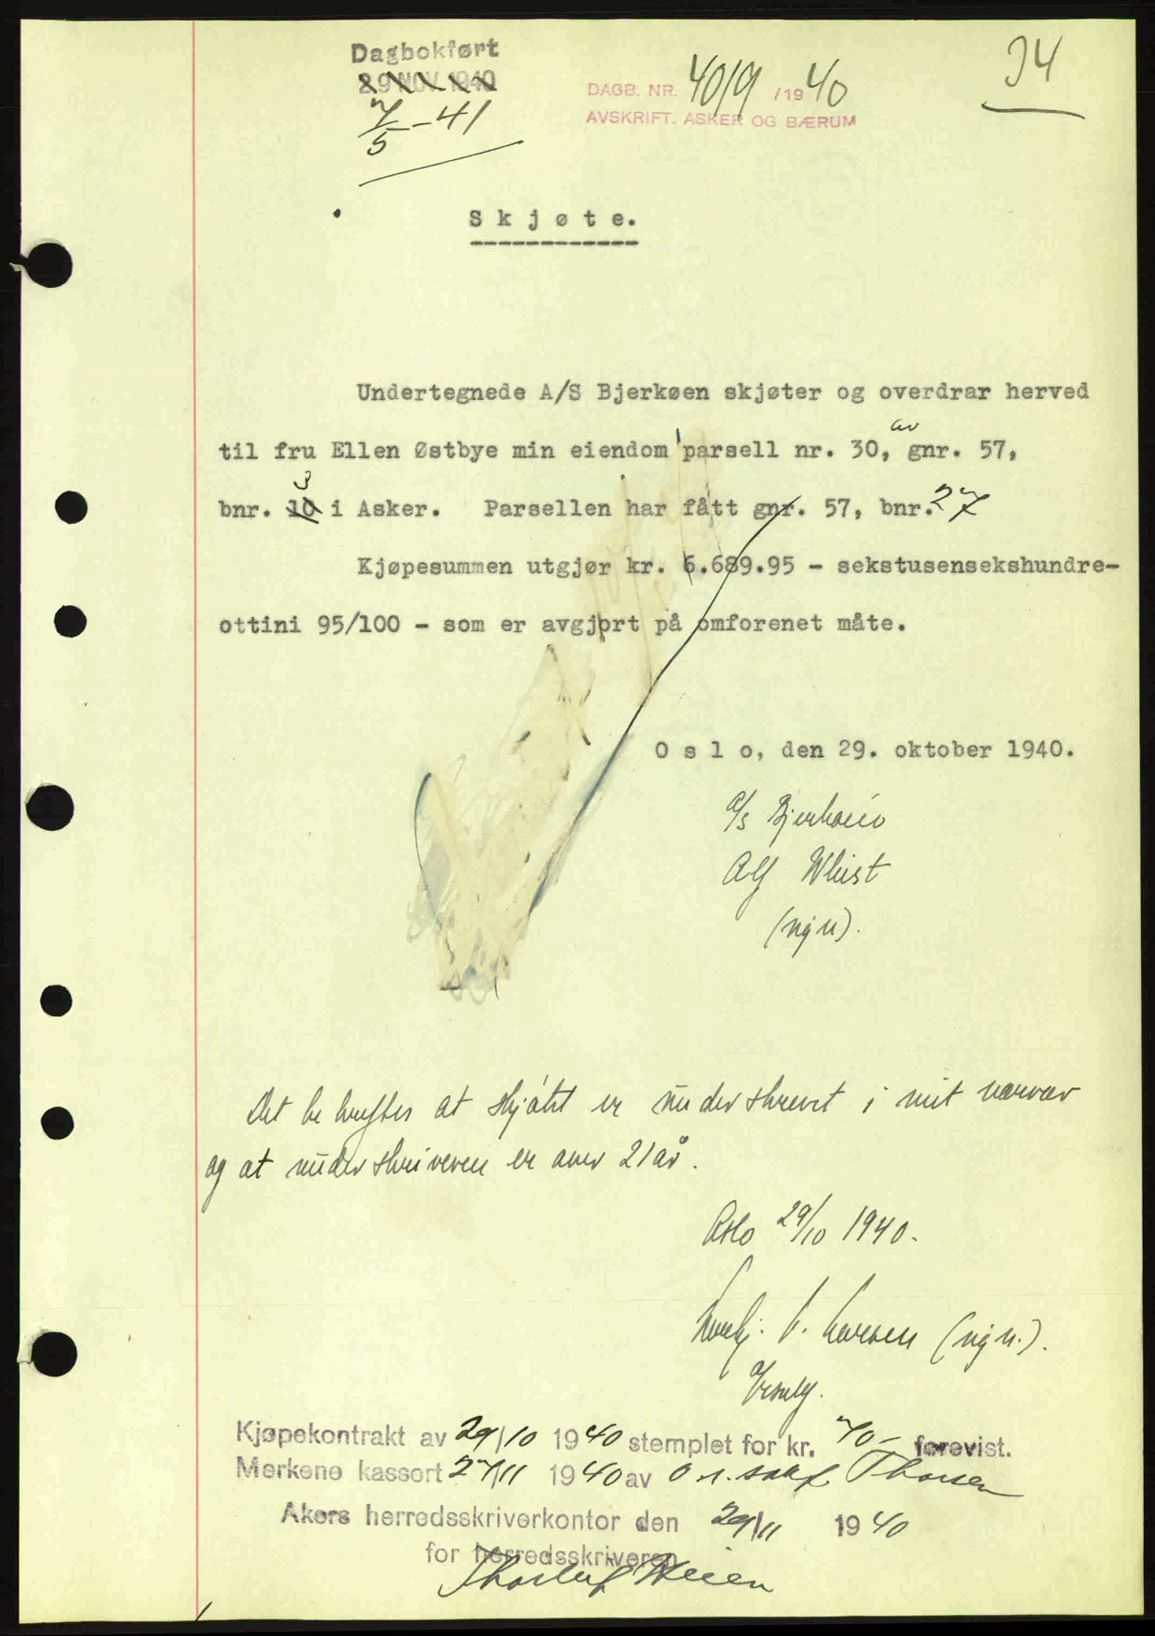 Dagbokført
29 NOV 1940
7/5 - 41
DAGB. NR. 4019 /1940
AVSKRIFT. ASKER OG BÆRUM
34
Skjøte.
Undertegnede A/S Bjerkøen skjøter og overdrar herved
av
til fru Ellen Østbye min eiendom parsell nr. 30, gnr. 57,
3
bnr. 10 i Asker. Parsellen har fått gnr. 57, bnr. 27
Kjøpesummen utgjør kr. 6.689.95 - sekstusensekshundre-
ottini 95/100 - som er avgjort på omforenet måte.
Oslo, den 29. oktober 1940.
A/S Bjerkøen
Alf Whist
(sign).
Det bekreftes at skjøtet er underskrevet i mit nærvær
og at underskriveren er over 21 år.
Oslo 29/10 1940.
Larsen (sign.).
Kjøpekontrakt av 29/10 1940 stemplet for kr. 70- forevist.
Merkene kassert 27/11 1940 av O.r.sakf Thorsen
Akers herredsskriverkontor den 29/11 1940
for herredsskriveren